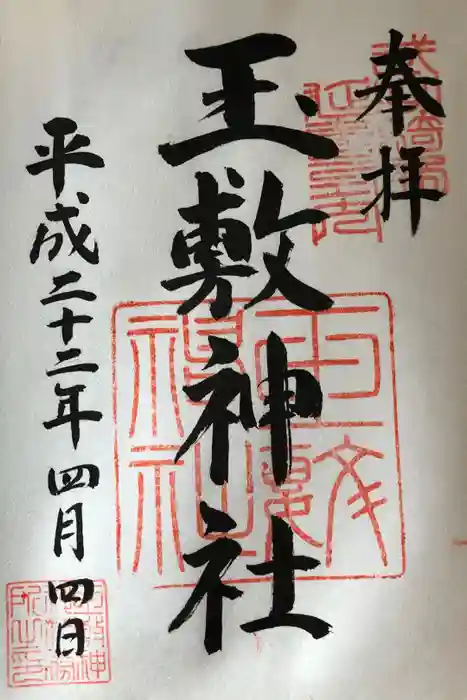 奉拝
玉敷神社
平成二十二年四月四日
玉敷神社